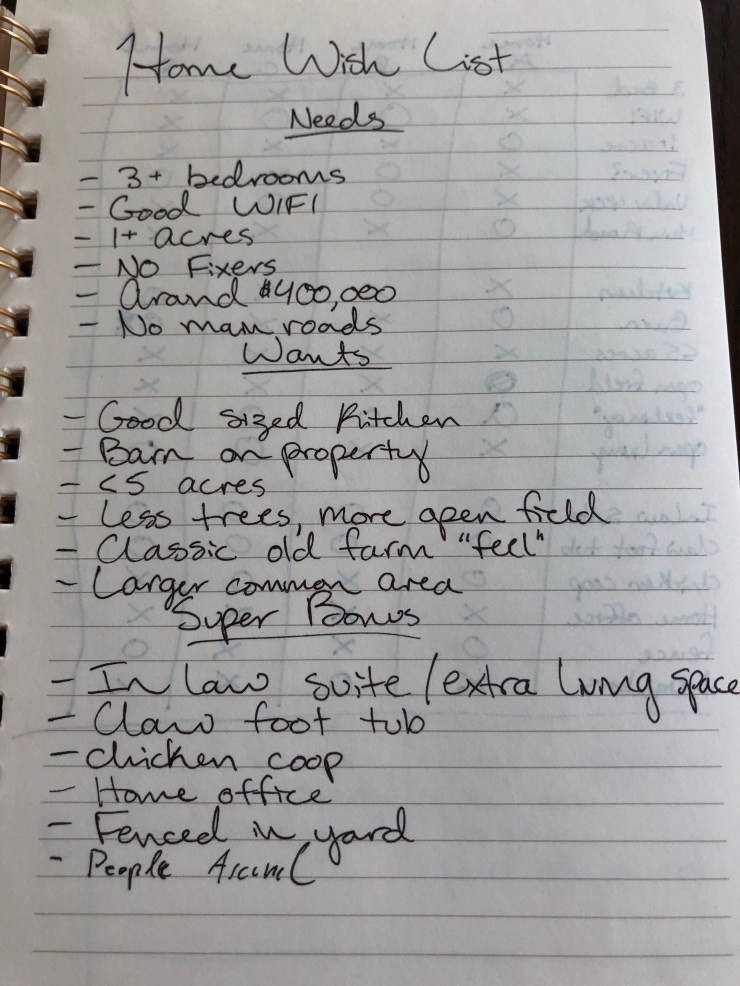 Home Wish List
Needs
- 3+ bedrooms
- Good WIFI
- 1+ acres
- No Fixers
- Around $400,000
- No main roads
Wants
- Good sized Kitchen
- Barn on property
- <5 acres
- Less trees, more open field
- Classic old farm "feel"
- Larger common area
Super Bonus
- In law suite/extra living space
- Claw foot tub
- Chicken coop
- Home office
- Fenced in yard
- People